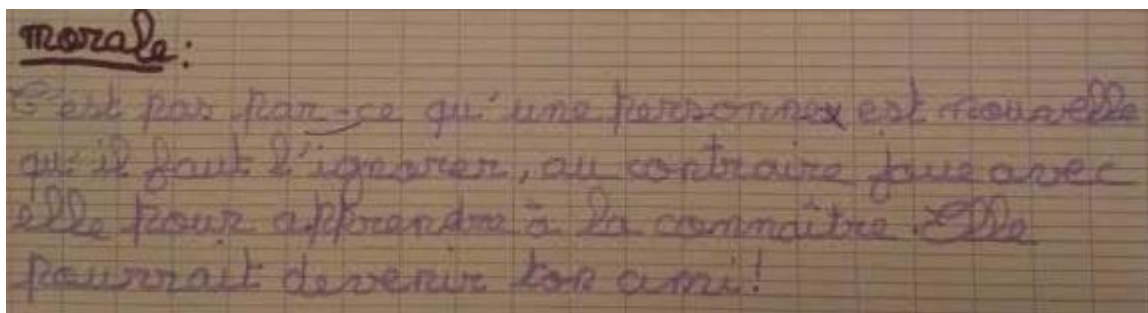 morale :
C'est pas par-ce qu'une personne est nouvelle
qu'il faut l'ignorer, au contraire joue avec
elle pour apprendre à la connaître. Elle
pourrait devenir ton ami !